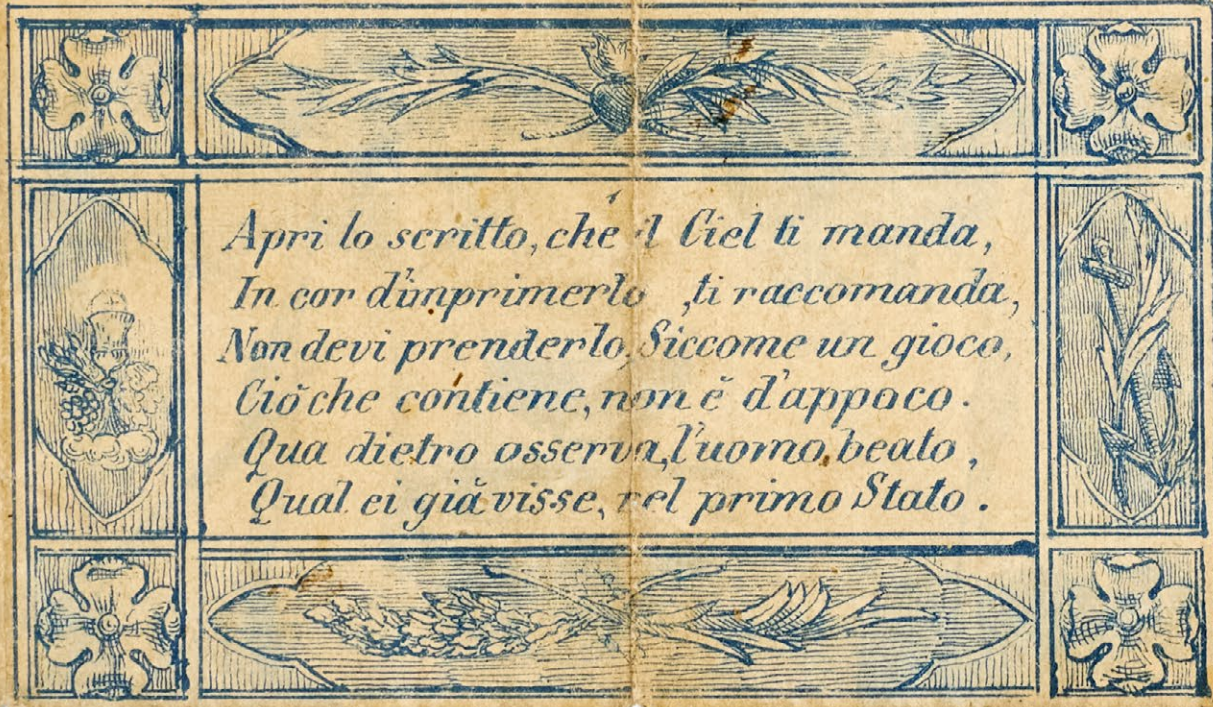 Apri lo scritto, che 'l Ciel ti manda,
In cor d'imprimerlo, ti raccomanda,
Non devi prenderlo, Siccome un gioco,
Ciò che contiene, non è d'appoco.
Qua dietro osserva, l'uomo beato,
Qual ei già visse, nel primo Stato.